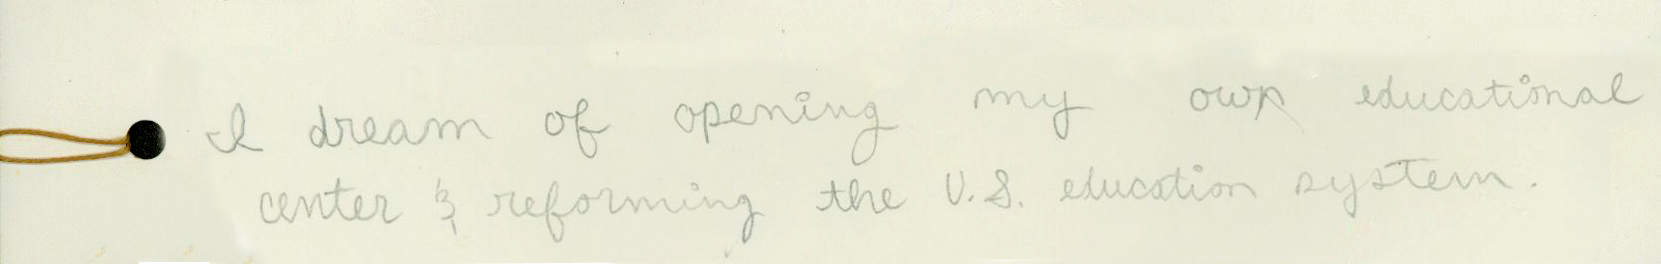 I dream of opening my own educational
center & reforming the U.S. education system.